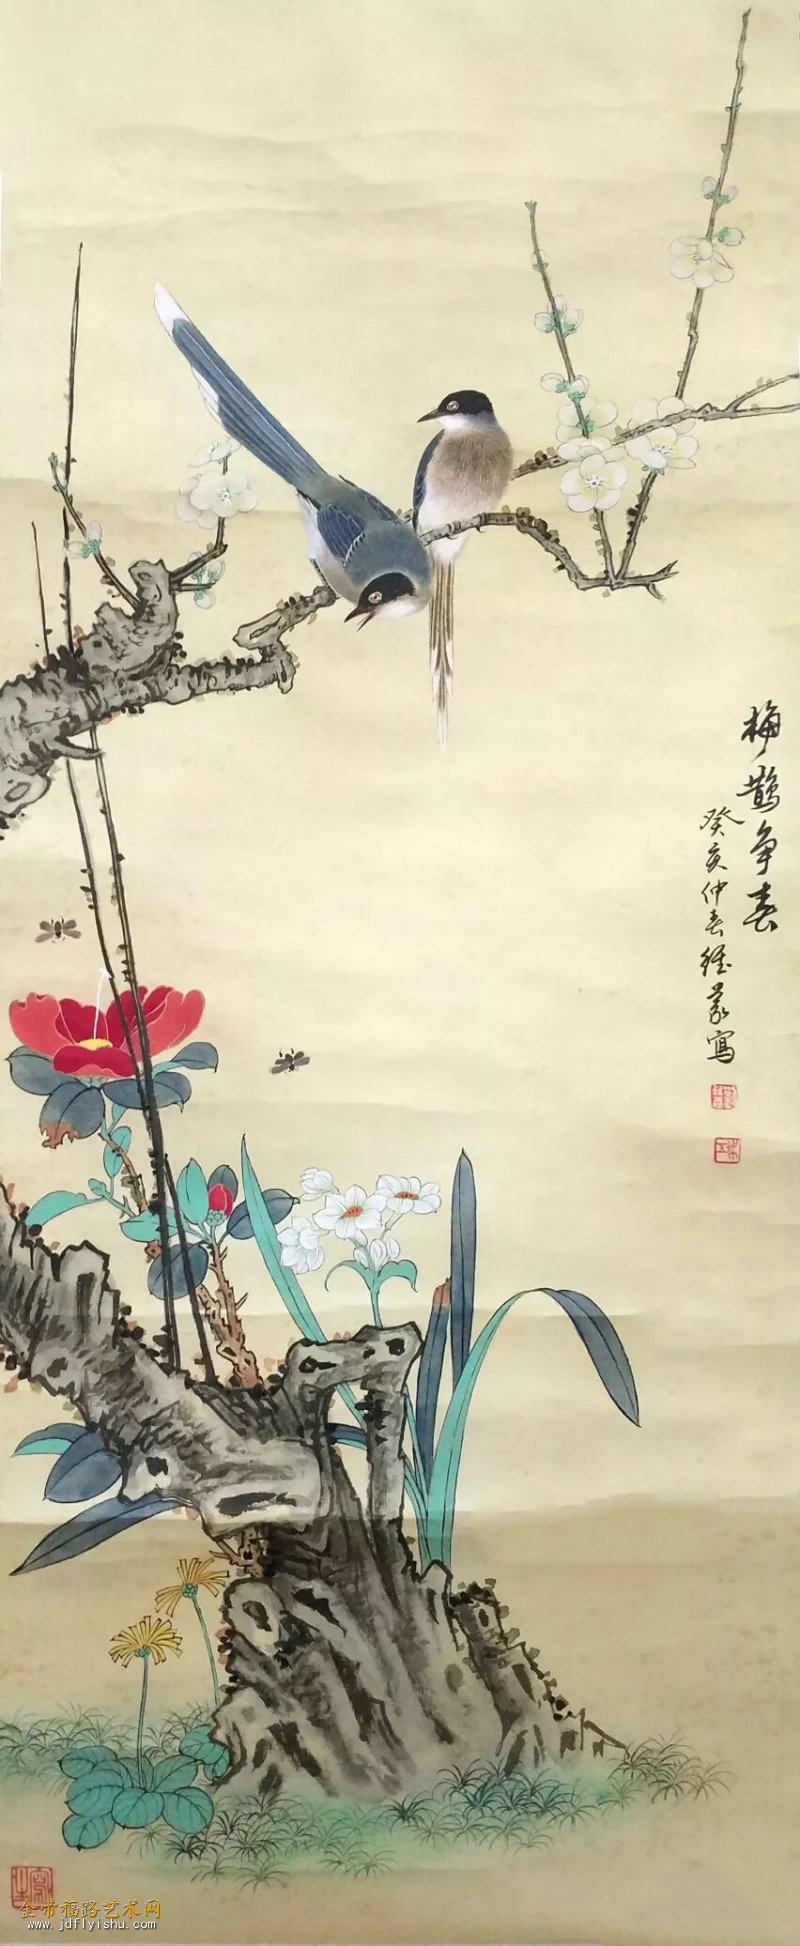 梅鹊争春
癸亥仲春経蒙寫
金带福路艺术网
www.jdflyishu.com